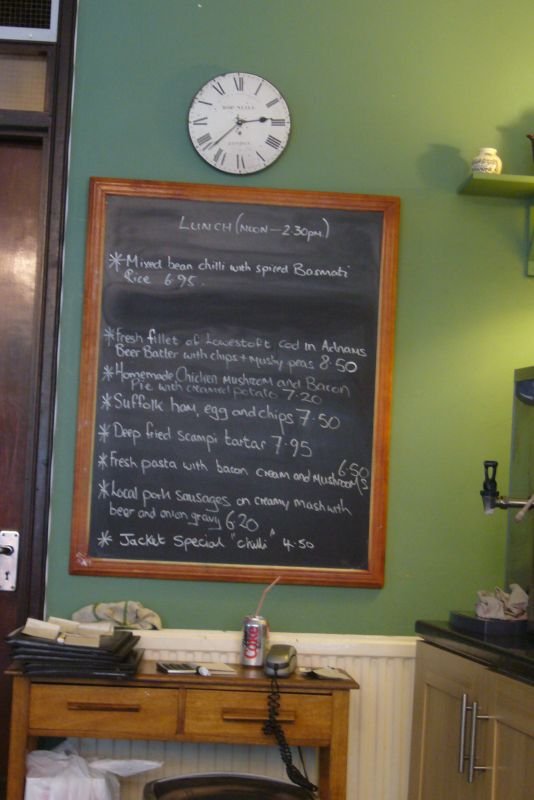 LUNCH (NOON - 2.30pm)
* Mixed bean chilli with spiced Basmati
Rice 6.95.
* Fresh fillet of Lowestoft Cod in Adnams
Beer Batter with chips + Mushy peas 8.50
* Homemade Chicken Mushroom and Bacon
Pie with creamed potato 7.20
* Suffolk ham, egg and chips 7.50
* Deep fried scampi tartar 7.95
* Fresh pasta with bacon cream and Mushrooms 6.50
* Local pork sausages on creamy mash with
beer and onion gravy 6.20
* Jacket Special "chilli" 4.50
LONDON
Coke